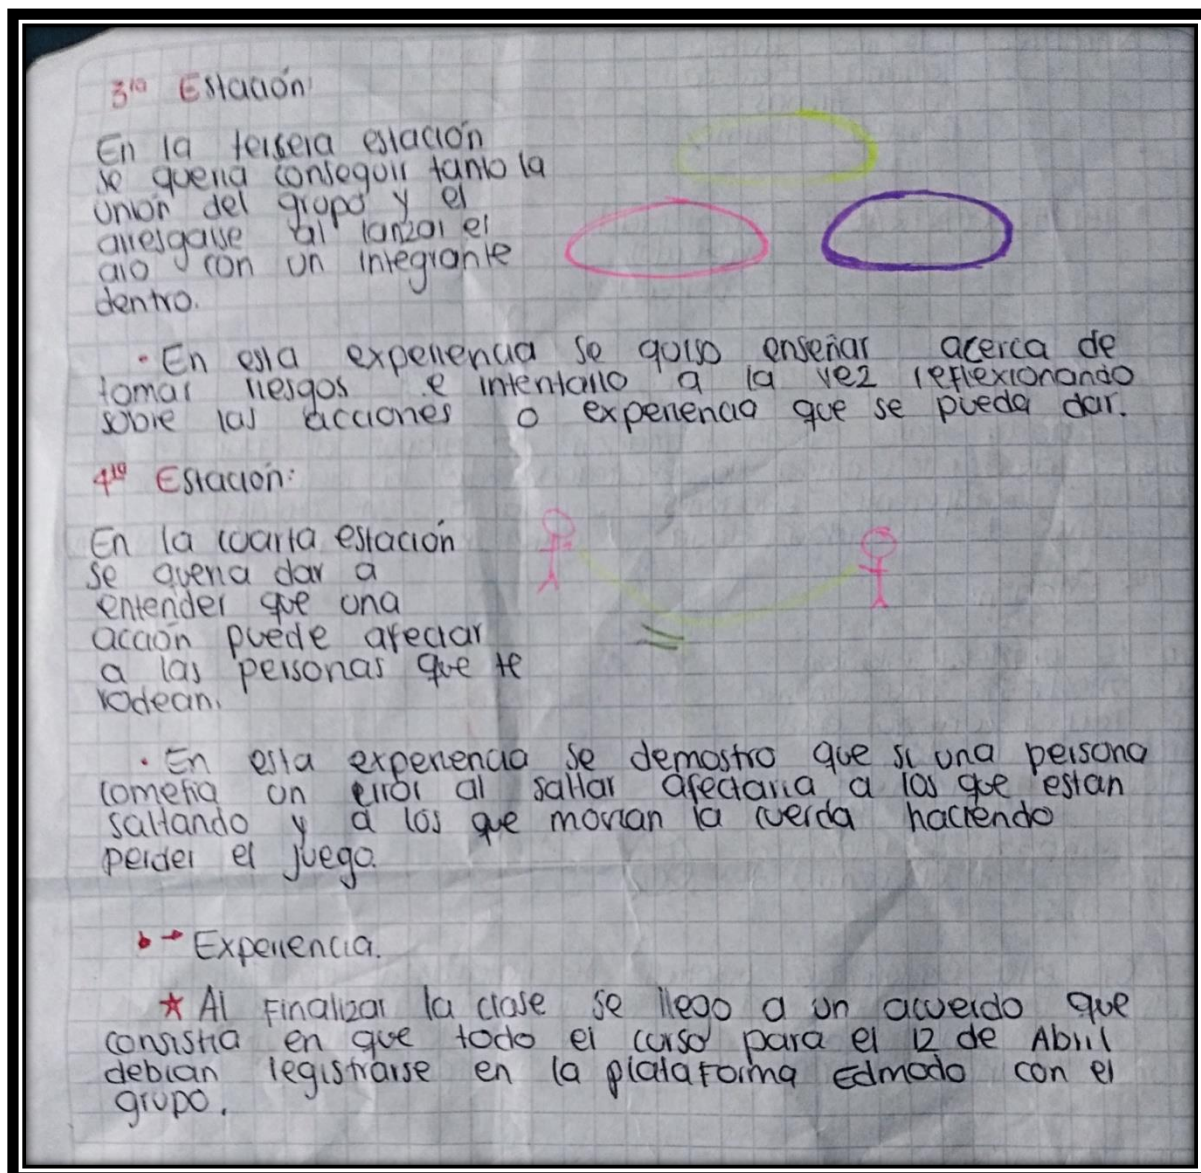 3ra Estación:
En la tersera estación
se queria conseguir tanto la
unión del grupo y el
arresgarse al lanzar el
aro con un integrante
dentro.
· En esta experiencia se quiso enseñar acerca de
tomar riesgos e intentarlo a la vez reflexionando
sobre las acciones o experiencia que se pueda dar.
4ta Estación:
En la cuarta estación
se queria dar a
entender que una
acción puede afectar
a las personas que te
rodean.
· En esta experiencia se demostro que si una persona
cometia un error al saltar afectaria a los que estan
saltando y a los que movian la cuerda haciendo
perder el juego.
→ Experiencia.
★ Al Finalizar la clase se llego a un acuerdo que
consistia en que todo el curso para el 12 de Abril
debian registrarse en la plataforma Edmodo con el
grupo.